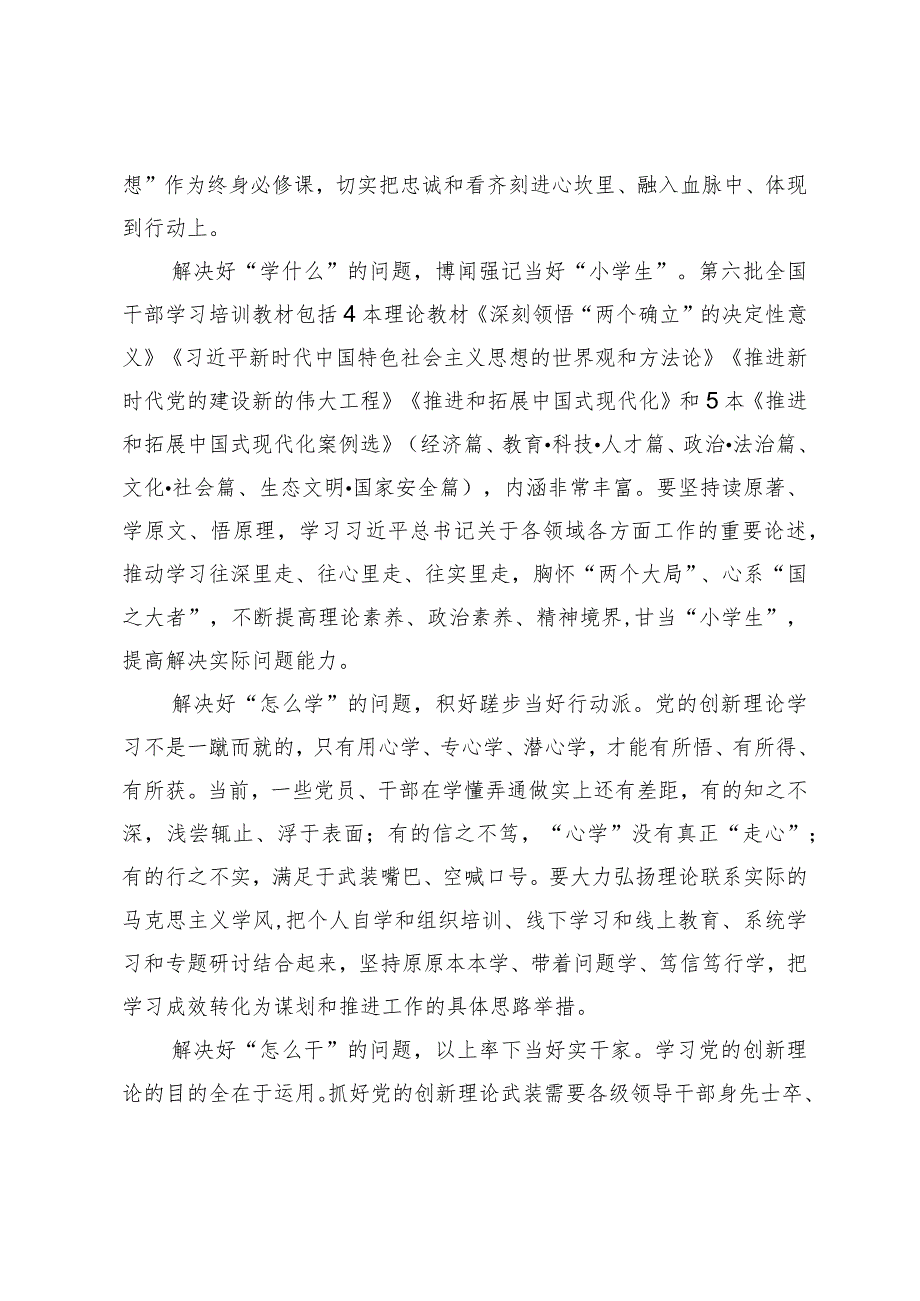 想”作为终身必修课，切实把忠诚和看齐刻进心坎里、融入血脉中、体现
到行动上。
解决好“学什么”的问题，博闻强记当好“小学生”。第六批全国
干部学习培训教材包括4本理论教材《深刻领悟“两个确立”的决定性意
义》《习近平新时代中国特色社会主义思想的世界观和方法论》《推进新
时代党的建设新的伟大工程》《推进和拓展中国式现代化》和5本《推进
和拓展中国式现代化案例选》（经济篇、教育•科技•人才篇、政治•法治篇、
文化•社会篇、生态文明•国家安全篇），内涵非常丰富。要坚持读原著、
学原文、悟原理，学习习近平总书记关于各领域各方面工作的重要论述，
推动学习往深里走、往心里走、往实里走，胸怀“两个大局”、心系“国
之大者”，不断提高理论素养、政治素养、精神境界,甘当“小学生”，
提高解决实际问题能力。
解决好“怎么学”的问题，积好蹉步当好行动派。党的创新理论学
习不是一蹴而就的，只有用心学、专心学、潜心学，才能有所悟、有所得、
有所获。当前，一些党员、干部在学懂弄通做实上还有差距，有的知之不
深，浅尝辄止、浮于表面；有的信之不笃，“心学”没有真正“走心”；
有的行之不实，满足于武装嘴巴、空喊口号。要大力弘扬理论联系实际的
马克思主义学风,把个人自学和组织培训、线下学习和线上教育、系统学
习和专题研讨结合起来，坚持原原本本学、带着问题学、笃信笃行学，把
学习成效转化为谋划和推进工作的具体思路举措。
解决好“怎么干”的问题，以上率下当好实干家。学习党的创新理
论的目的全在于运用。抓好党的创新理论武装需要各级领导干部身先士卒、